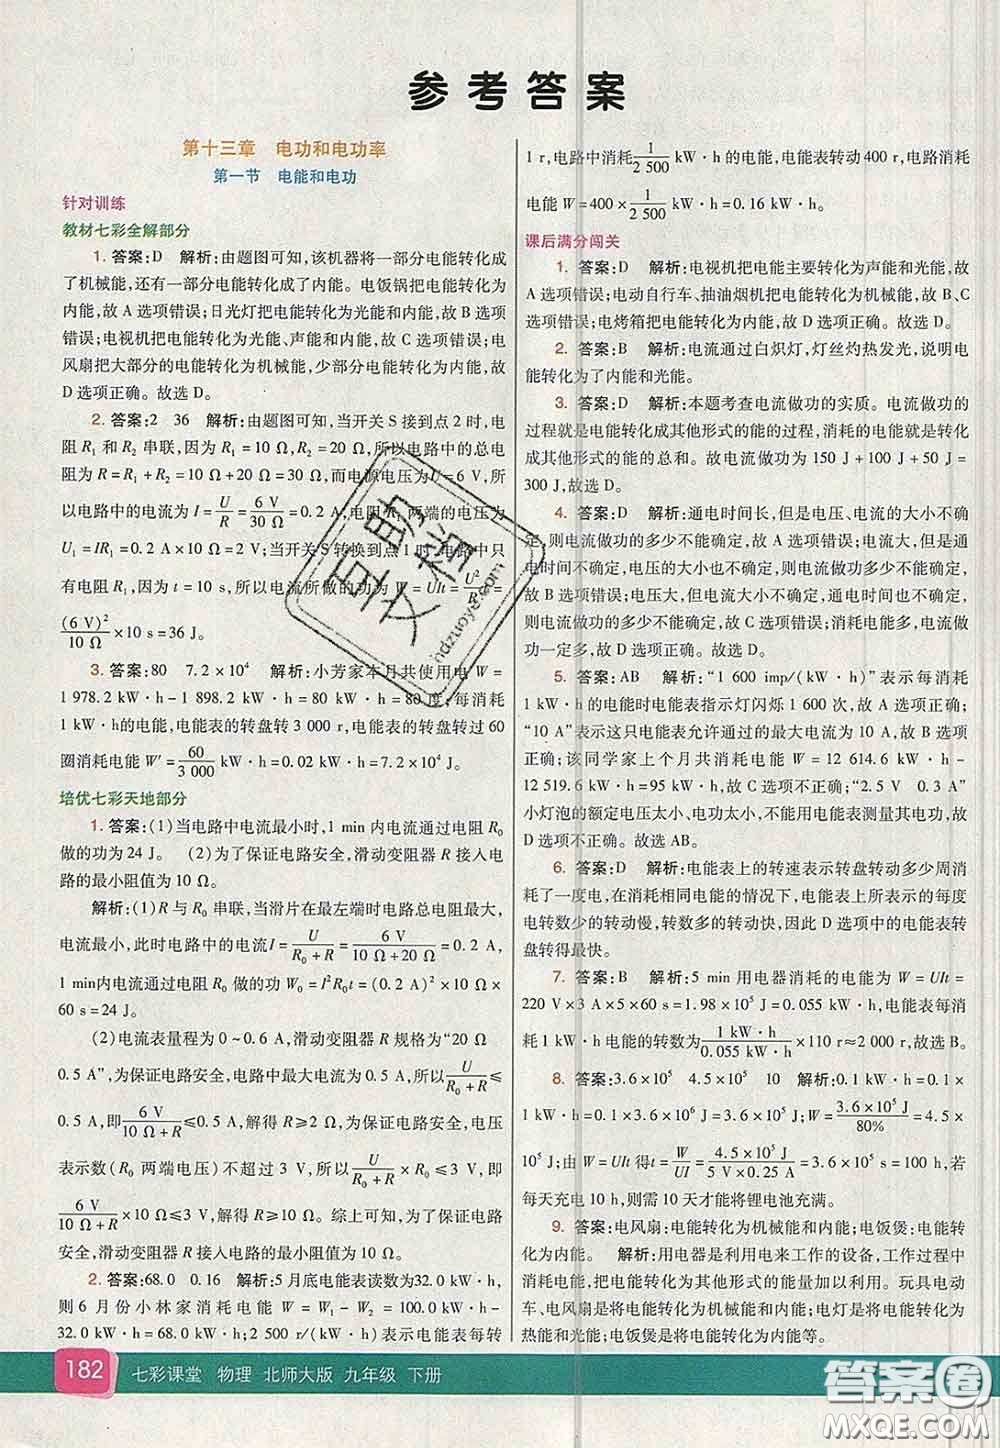 参考答案
第十三章 电功和电功率
第一节 电能和电功
针对训练
教材七彩全解部分
1. 答案:D 解析:由题图可知,该机器将一部分电能转化成
了机械能,还有一部分电能转化成了内能。电饭锅把电能转化为
内能,故 A 选项错误;日光灯把电能转化为光能和内能,故 B 选项
错误;电视机把电能转化为光能、声能和内能,故 C 选项错误;电
风扇把大部分的电能转化为机械能,少部分电能转化为内能,故
D 选项正确。故选 D。
2. 答案:2 36 解析:由题图可知,当开关 S 接到点 2 时,电
阻 R₁ 和 R₂ 串联,因为 R₁ = 10 Ω,R₂ = 20 Ω,所以电路中的总电
阻为 R = R₁ + R₂ = 10 Ω + 20 Ω = 30 Ω,而电源电压为 U = 6 V,所
以电路中的电流为 I = U/R = 6 V/30 Ω = 0.2 A;电阻 R₁ 两端的电压为
U₁ = IR₁ = 0.2 A × 10 Ω = 2 V;当开关 S 转换到点 1 时,电路中只
有电阻 R₁,因为 t = 10 s,所以电流所做的功为 W = UIt = U²/R₁ t =
(6 V)²/10 Ω × 10 s = 36 J。
3. 答案:80 7.2 × 10⁴ 解析:小芳家本月共使用电 W =
1 978.2 kW·h - 1 898.2 kW·h = 80 kW·h = 80 度;每消耗
1 kW·h的电能,电能表的转盘转 3 000 r,电能表的转盘转过 60
圈消耗电能 W′ = 60/3 000 kW·h = 0.02 kW·h = 7.2 × 10⁴ J。
培优七彩天地部分
1. 答案:(1)当电路中电流最小时,1 min 内电流通过电阻 R₀
做的功为 24 J。 (2)为了保证电路安全,滑动变阻器 R 接入电
路的最小阻值为 10 Ω。
解析:(1)R 与 R₀ 串联,当滑片在最左端时电路总电阻最大,
电流最小,此时电路中的电流 I = U/(R₀ + R) = 6 V/(10 Ω + 20 Ω) = 0.2 A,
1 min内电流通过电阻 R₀ 做的功 W₀ = I²R₀t = (0.2 A)² × 10 Ω ×
60 s = 24 J。
(2)电流表量程为 0 ~ 0.6 A,滑动变阻器 R 规格为“20 Ω
0.5 A”,为保证电路安全,电路中最大电流为 0.5 A,所以 U/(R₀ + R) ≤
0.5 A,即 6 V/(10 Ω + R) ≤ 0.5 A,解得 R ≥ 2 Ω。为保证电路安全,电压
表示数(R₀ 两端电压)不超过 3 V,所以 U/(R₀ + R) × 10 Ω ≤ 3 V,即
6 V/(10 Ω + R) × 10 Ω ≤ 3 V,解得 R ≥ 10 Ω。综上可知,为了保证电路
安全,滑动变阻器 R 接入电路的最小阻值为 10 Ω。
2. 答案:68.0 0.16 解析:5 月底电能表读数为32.0 kW·h,
则 6 月份小林家消耗电能 W = W₁ - W₂ = 100.0 kW·h -
32.0 kW·h = 68.0 kW·h;2 500 r/(kW·h)表示电能表每转
1 r,电路中消耗 1/2 500 kW·h 的电能,电能表转动 400 r,电路消耗
电能 W = 400 × 1/2 500 kW·h = 0.16 kW·h。
课后满分闯关
1. 答案:D 解析:电视机把电能主要转化为声能和光能,故
A 选项错误;电动自行车、抽油烟机把电能转化为机械能,故 B、C
选项错误;电烤箱把电能转化为内能,故 D 选项正确。故选 D。
2. 答案:B 解析:电流通过白炽灯,灯丝灼热发光,说明电
能转化为了内能和光能。
3. 答案:D 解析:本题考查电流做功的实质。电流做功的
过程就是电能转化成其他形式的能的过程,消耗的电能就是转化
成其他形式的能的总和。故电流做功为 150 J + 100 J + 50 J =
300 J,故选 D。
4. 答案:D 解析:通电时间长,但是电压、电流的大小不确
定,则电流做功的多少不能确定,故 A 选项错误;电流大,但是通
电时间不确定,电压的大小也不确定,则电流做功多少不能确定,
故 B 选项错误;电压大,但电流大小、通电时间不确定,则电流做
功的多少也不能确定,故 C 选项错误;消耗电能多,则电流做
功一定多,故 D 选项正确。故选 D。
5. 答案:AB 解析:“1 600 imp/(kW·h)”表示每消耗
1 kW·h 的电能时电能表指示灯闪烁 1 600 次,故 A 选项正确;
“10 A”表示这只电能表允许通过的最大电流为 10 A,故 B 选项
正确;该同学家上个月共消耗电能为 W = 12 614.6 kW·h -
12 519.6 kW·h = 95 kW·h,故 C 选项不正确;“2.5 V 0.3 A”
小灯泡的额定电压太小、电功太小,不能用电能表测量其电功,故
D 选项不正确。故选 AB。
6. 答案:D 解析:电能表上的转速表示转盘转动多少周消
耗了一度电,在消耗相同电能的情况下,电能表所表示的每度
电转数少的转动慢,转数多的转动快,因此 D 选项中的电能表转
盘转得最快。
7. 答案:B 解析:5 min 用电器消耗的电能为 W = UIt =
220 V × 3 A × 5 × 60 s = 1.98 × 10⁵ J = 0.055 kW·h,电能表每消
耗 1 kW·h 电能的转数为 1 kW·h/0.055 kW·h × 110 r ≈ 2 000 r,故选 B。
8. 答案:3.6 × 10⁵ 4.5 × 10⁵ 10 解析:0.1 kW·h = 0.1 ×
1 kW·h = 0.1 × 3.6 × 10⁶ J = 3.6 × 10⁵ J;W = 3.6 × 10⁵ J/80% = 4.5 ×
10⁵ J;由 W = UIt 得 t = W/UI = 4.5 × 10⁵ J/(5 V × 0.25 A) = 3.6 × 10⁵ s = 100 h,若
每天充电 10 h,则需 10 天才能将锂电池充满。
9. 答案:电风扇:电能转化为机械能和内能;电饭煲:电能转
化为内能。 解析:用电器是利用电来工作的设备,工作过程中
消耗电能,把电能转化为其他形式的能量加以利用。玩具电动
车、电风扇是将电能转化为机械能和内能;电灯是将电能转化为
光能和内能;电饭煲是将电能转化为内能等。
182 七彩课堂 物理 北师大版 九年级 下册
答案圈
MXQE.COM